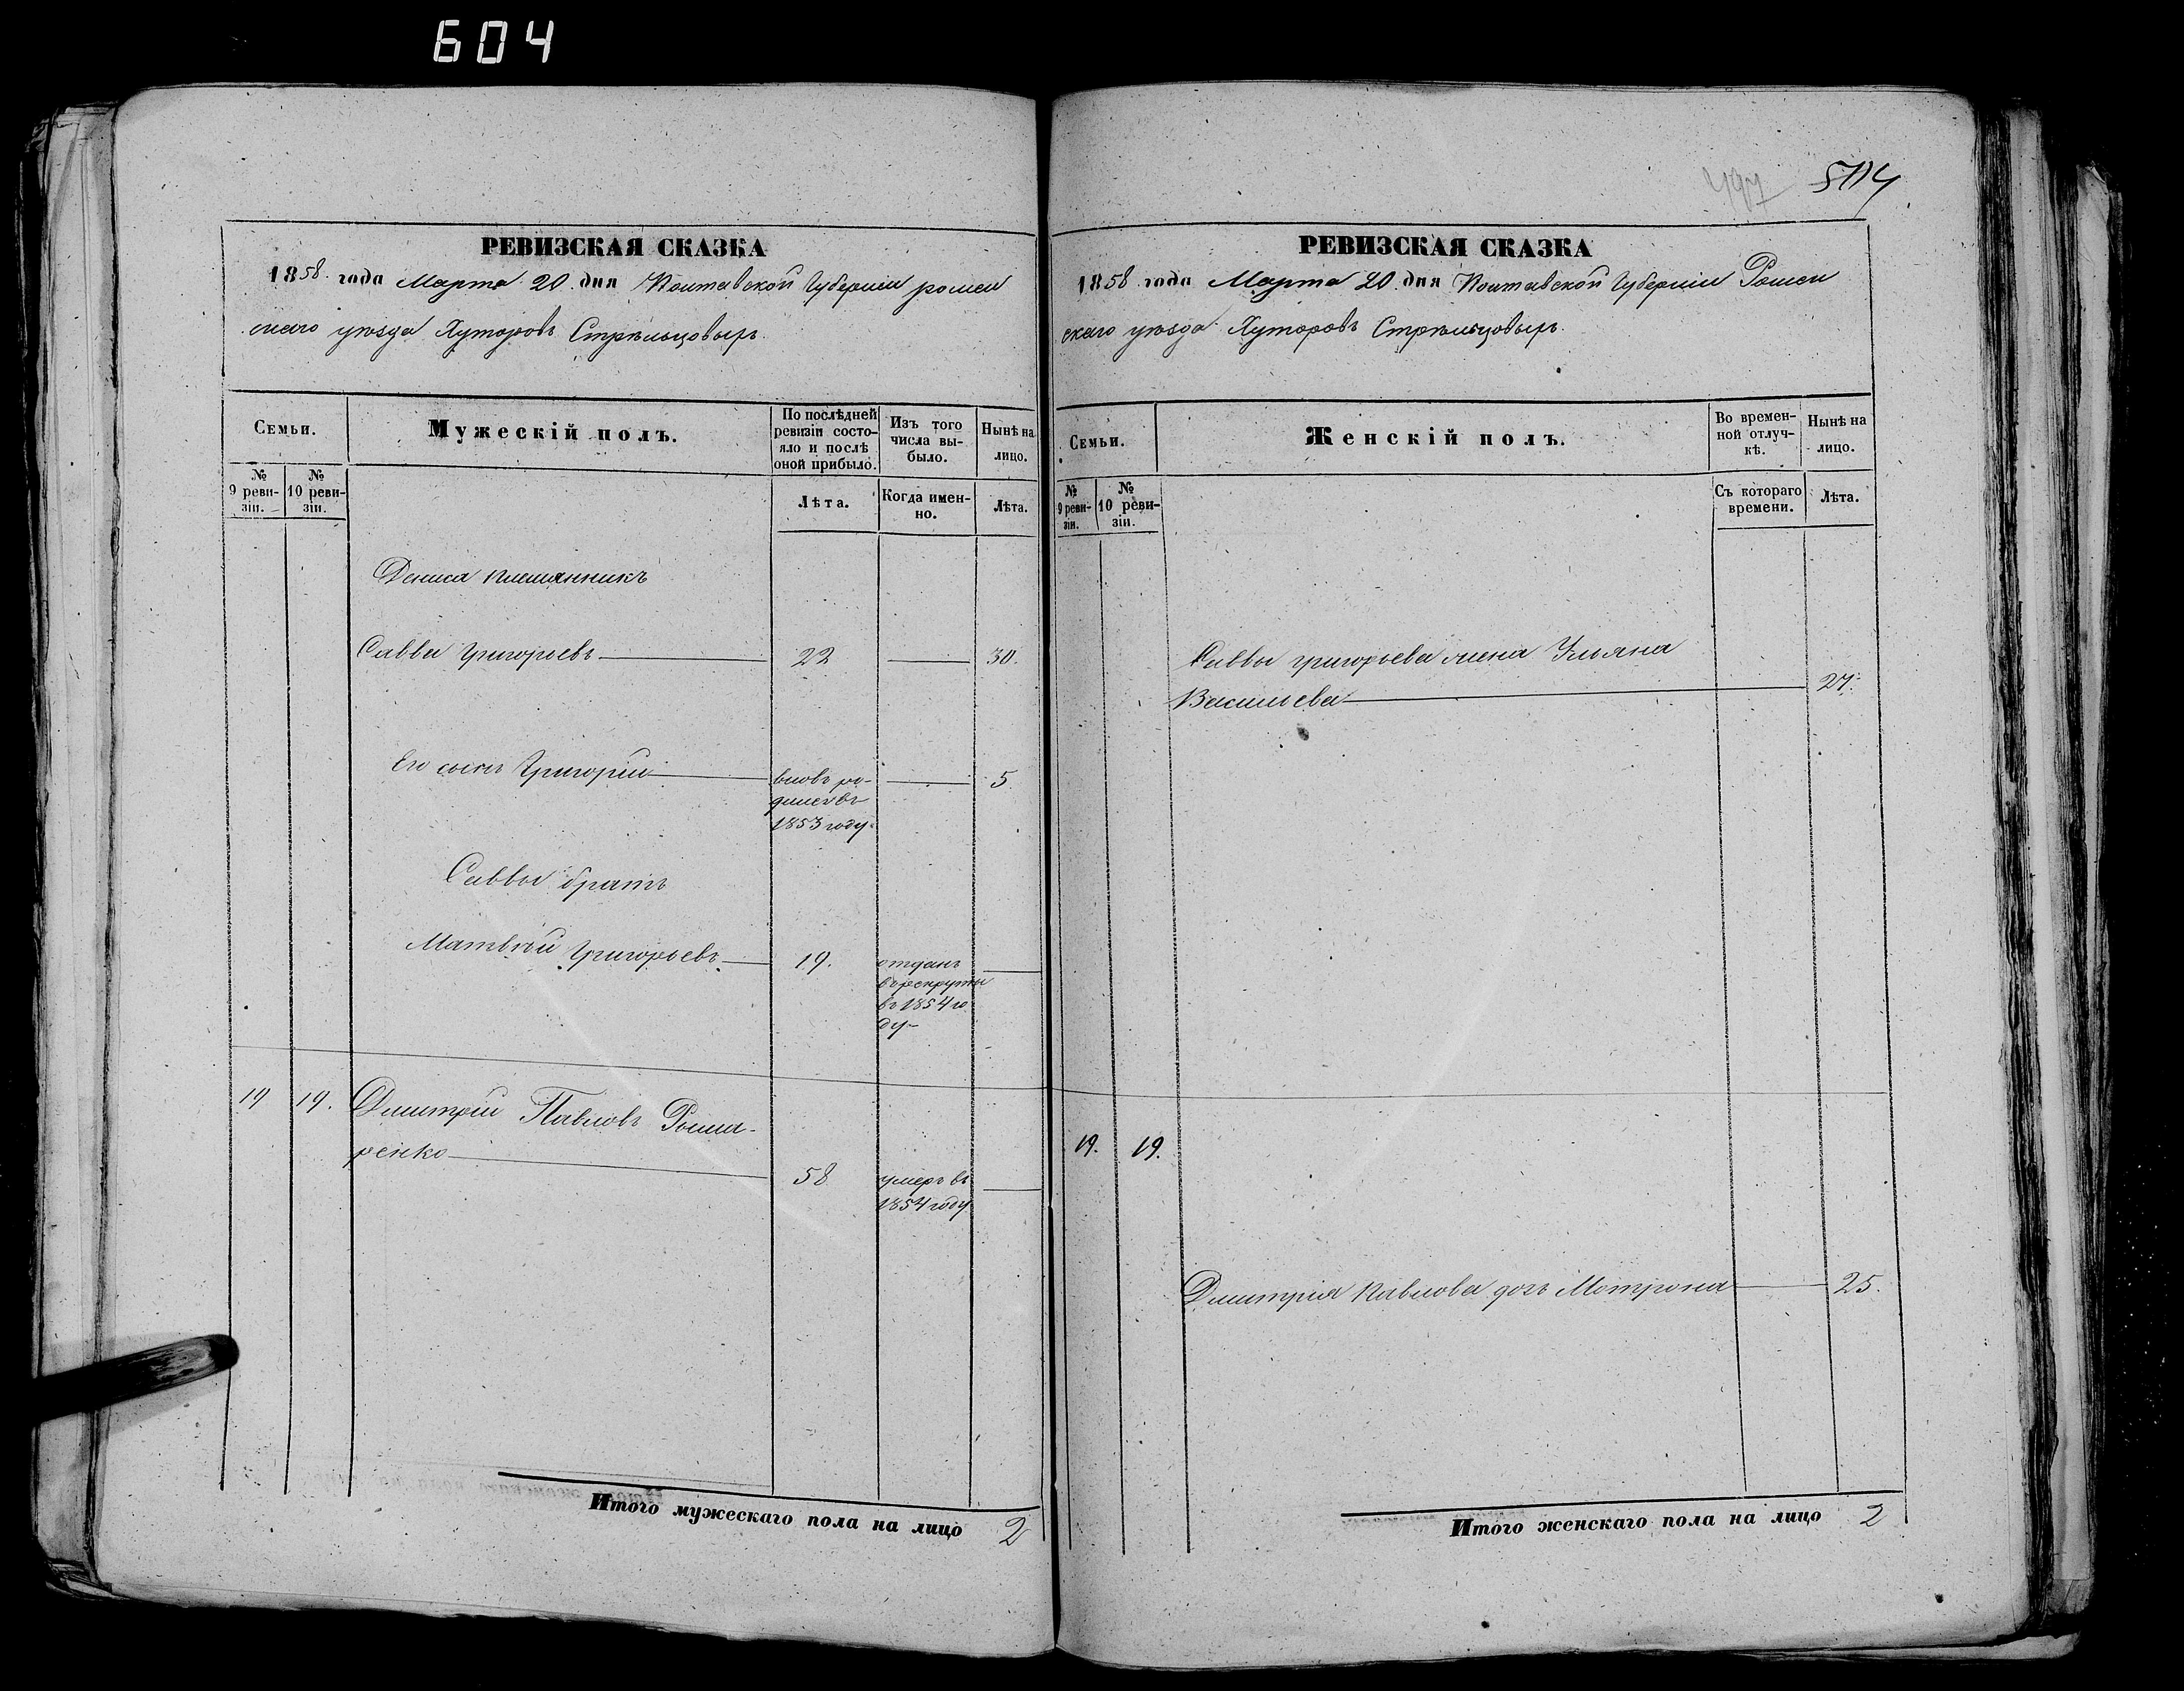 604
РЕВИЗСКАЯ СКАЗКА
1858 года Марта 20 дня Полтавской Губерніи ромен
скаго уѣзда Хуторовъ Стрѣльцовыхъ.
Семьи.
Мужескій полъ.
По послѣдней
ревизіи состо-
яло и послѣ
оной прибыло.
Изъ того
числа вы-
было.
Нынѣ на
лицо.
№
9 реви-
зіи.
№
10 реви-
зіи.
Лѣта.
Когда имен-
но.
Лѣта.
Дениса племянникъ
Савва Григорьевъ 22 30.
Его сынъ Григорій вновь ро- 5.
дился въ
1853 году
Саввы братъ
Матвѣй Григорьевъ 19. отданъ
въ рекруты
въ 1854 го
ду
19 19. Дмитрій Павловъ Рыма-
ренко 58 умеръ въ
1854 году
Итого мужескаго пола на лицо 2
497 504
РЕВИЗСКАЯ СКАЗКА
1858 года Марта 20 дня Полтавской Губерніи Ромен
скаго уѣзда Хуторовъ Стрѣльцовыхъ.
Семьи.
Женскій полъ.
Во времен-
ной отлуч-
кѣ.
Нынѣ на
лицо.
№
9 реви-
зіи.
№
10 реви-
зіи.
Съ котораго
времени.
Лѣта.
Саввы григорьева жена Ульяна
Васильева 27.
19. 19.
Дмитрія Павлова дочь Мотрона 25.
Итого женскаго пола на лицо 2